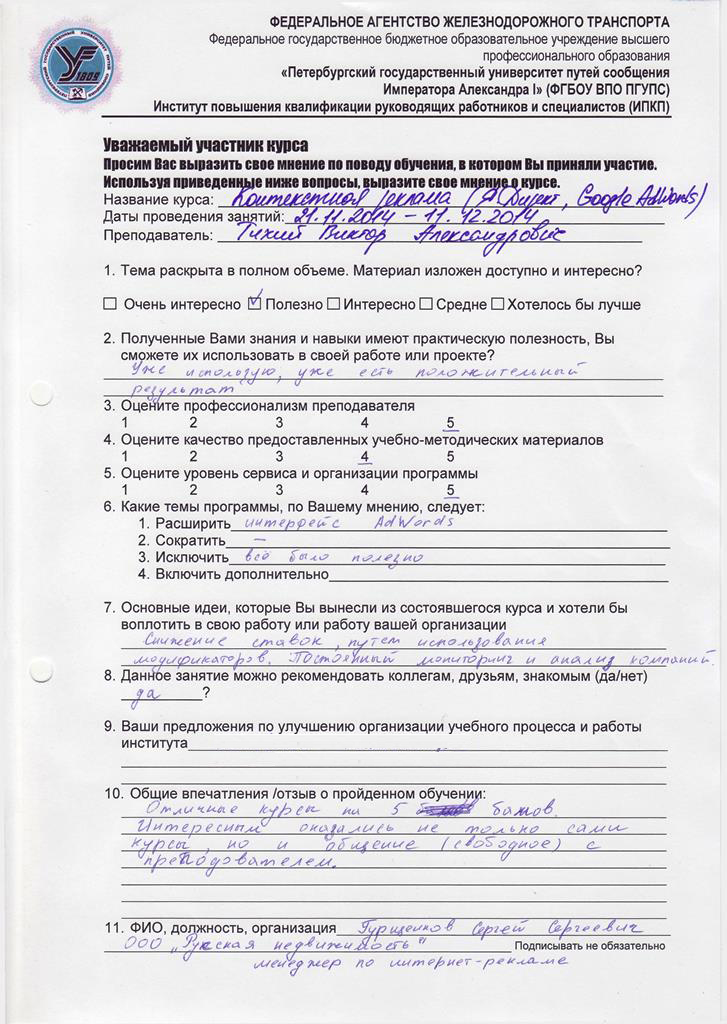 ФЕДЕРАЛЬНОЕ АГЕНТСТВО ЖЕЛЕЗНОДОРОЖНОГО ТРАНСПОРТА
Федеральное государственное бюджетное образовательное учреждение высшего
профессионального образования
«Петербургский государственный университет путей сообщения
Императора Александра I» (ФГБОУ ВПО ПГУПС)
Институт повышения квалификации руководящих работников и специалистов (ИПКП)
1809
Уважаемый участник курса
Просим Вас выразить свое мнение по поводу обучения, в котором Вы приняли участие.
Используя приведенные ниже вопросы, выразите свое мнение о курсе.
Название курса: Контекстная реклама (Я Директ, Google AdWords)
Даты проведения занятий: 21.11.2014 - 11.12.2014
Преподаватель: Тихий Виктор Александрович
1. Тема раскрыта в полном объеме. Материал изложен доступно и интересно?
Очень интересно Полезно Интересно Средне Хотелось бы лучше
2. Полученные Вами знания и навыки имеют практическую полезность, Вы
сможете их использовать в своей работе или проекте?
Уже использую, уже есть положительный
результат
3. Оцените профессионализм преподавателя
1 2 3 4 5
4. Оцените качество предоставленных учебно-методических материалов
1 2 3 4 5
5. Оцените уровень сервиса и организации программы
1 2 3 4 5
6. Какие темы программы, по Вашему мнению, следует:
1. Расширить интерфейс AdWords
2. Сократить –
3. Исключить всё было полезно
4. Включить дополнительно
7. Основные идеи, которые Вы вынесли из состоявшегося курса и хотели бы
воплотить в свою работу или работу вашей организации
Снижение ставок, путем использования
модификаторов. Постоянный мониторинг и анализ компаний.
8. Данное занятие можно рекомендовать коллегам, друзьям, знакомым (да/нет)
да ?
9. Ваши предложения по улучшению организации учебного процесса и работы
института
10. Общие впечатления /отзыв о пройденном обучении:
Отличные курсы на 5 балов.
Интересным оказались не только сами
курсы, но и общение (свободное) с
преподователем.
11. ФИО, должность, организация Сергей Сергеевич
ООО "Русская недвижимость"
Подписывать не обязательно
менеджер по интернет-рекламе